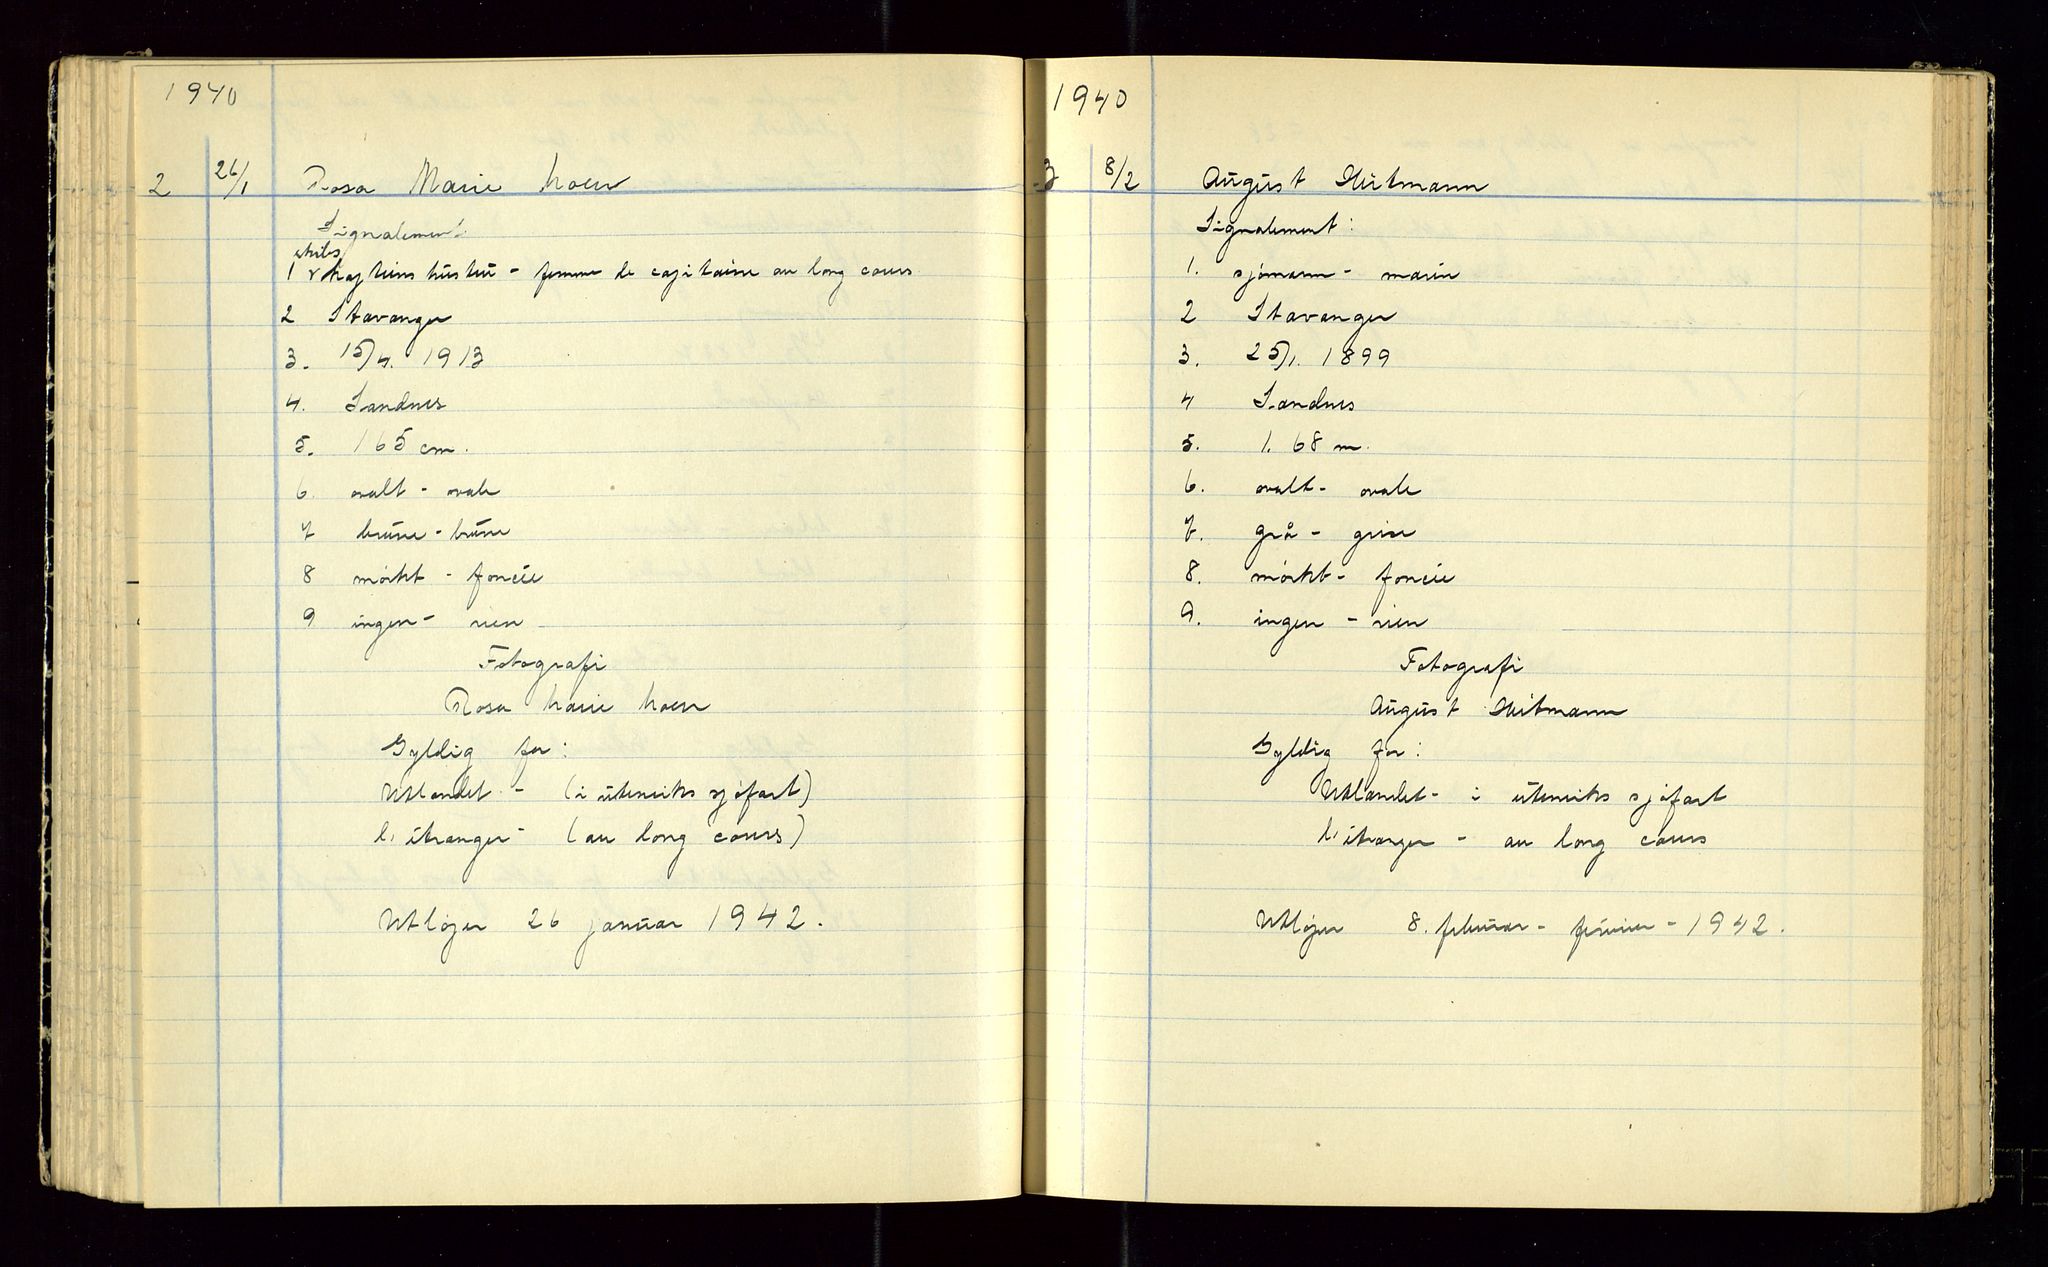 1940
2 26/1 Rosa Marie Moen
Signalement:
skibs
1 kapteins hustru - femme de capitaine au long cours
2 Stavanger
3. 15/4. 1913
4. Sandnes
5. 165 cm.
6. ovalt - ovale
7 brune - brune
8 mörkt - foncée
9 ingen - rien
Fotografi
Rosa Marie Moen
Gyldig for:
Utlandet - (i utenriks sjöfart)
l'étranger - (au long cours)
Utløper 26 januar 1942.
1940
3 8/2 August Heitmann
Signalement:
1. sjømann - marin
2 Stavanger
3. 25/1. 1899
4 Sandnes
5. 1.68 m.
6. ovalt - ovale
7. grå - grise
8. mörkt - foncée
9. ingen - rien
Fotografi
August Heitmann
Gyldig for:
Utlandet - i utenriks sjøfart
l'étranger - au long cours
Utløper 8. februar - février - 1942.